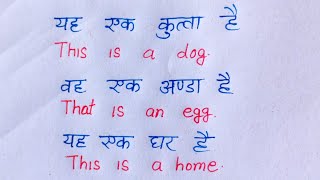 यह एक कुत्ता है
This is a dog.
वह एक अण्डा है
That is an egg.
यह एक घर है
This is a home.